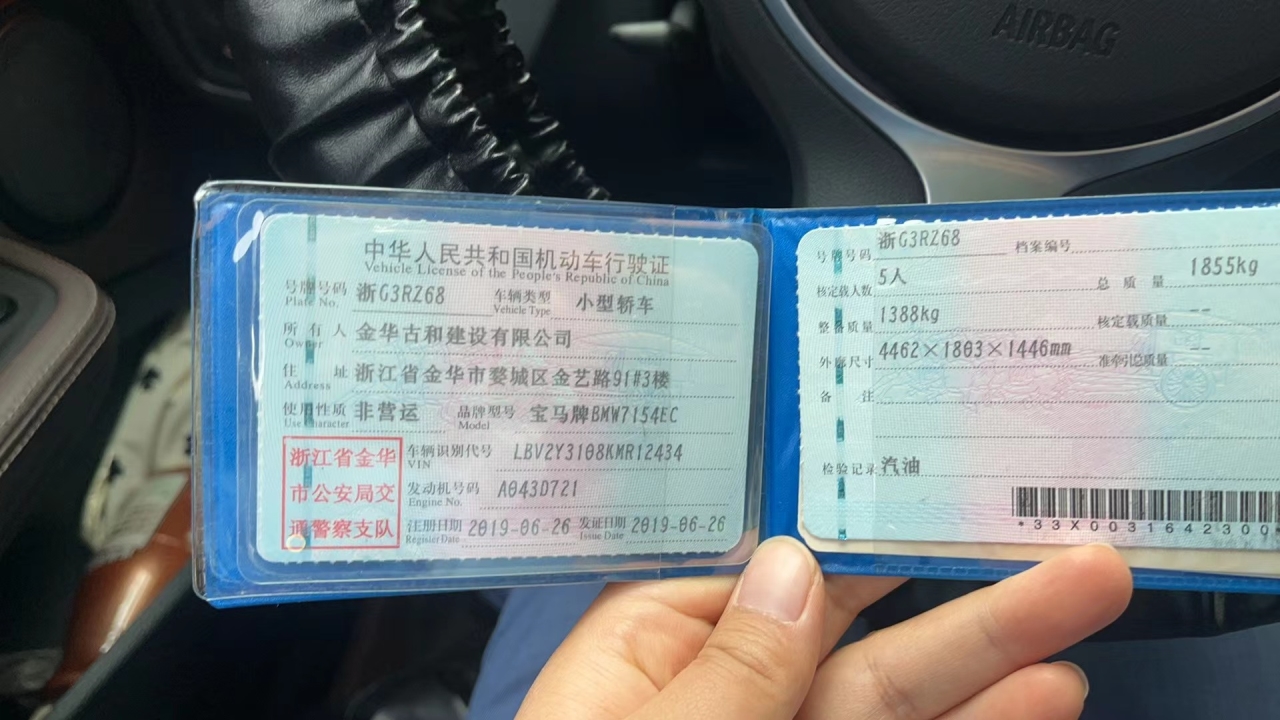 AIRBAG
中华人民共和国机动车行驶证
Vehicle License of the People's Republic of China
号牌号码 浙G3RZ68 车辆类型 小型轿车
Plate No. Vehicle Type
所有人 金华古和建设有限公司
Owner
住址 浙江省金华市婺城区金艺路91#3楼
Address
使用性质 非营运 品牌型号 宝马牌BMW7154EC
Use Character Model
浙江省金华
市公安局交
通警察支队
车辆识别代号 LBV2Y3108KMR12434
VIN
发动机号码 A043D721
Engine No.
注册日期 2019-06-26 发证日期 2019-06-26
Register Date Issue Date
号牌号码 浙G3RZ68 档案编号
核定载人数 5人 总质量 1855kg
整备质量 1388kg 核定载质量 --
外廓尺寸 4462×1803×1446mm 准牵引总质量 --
备注
检验记录 汽油
*33X0031642300